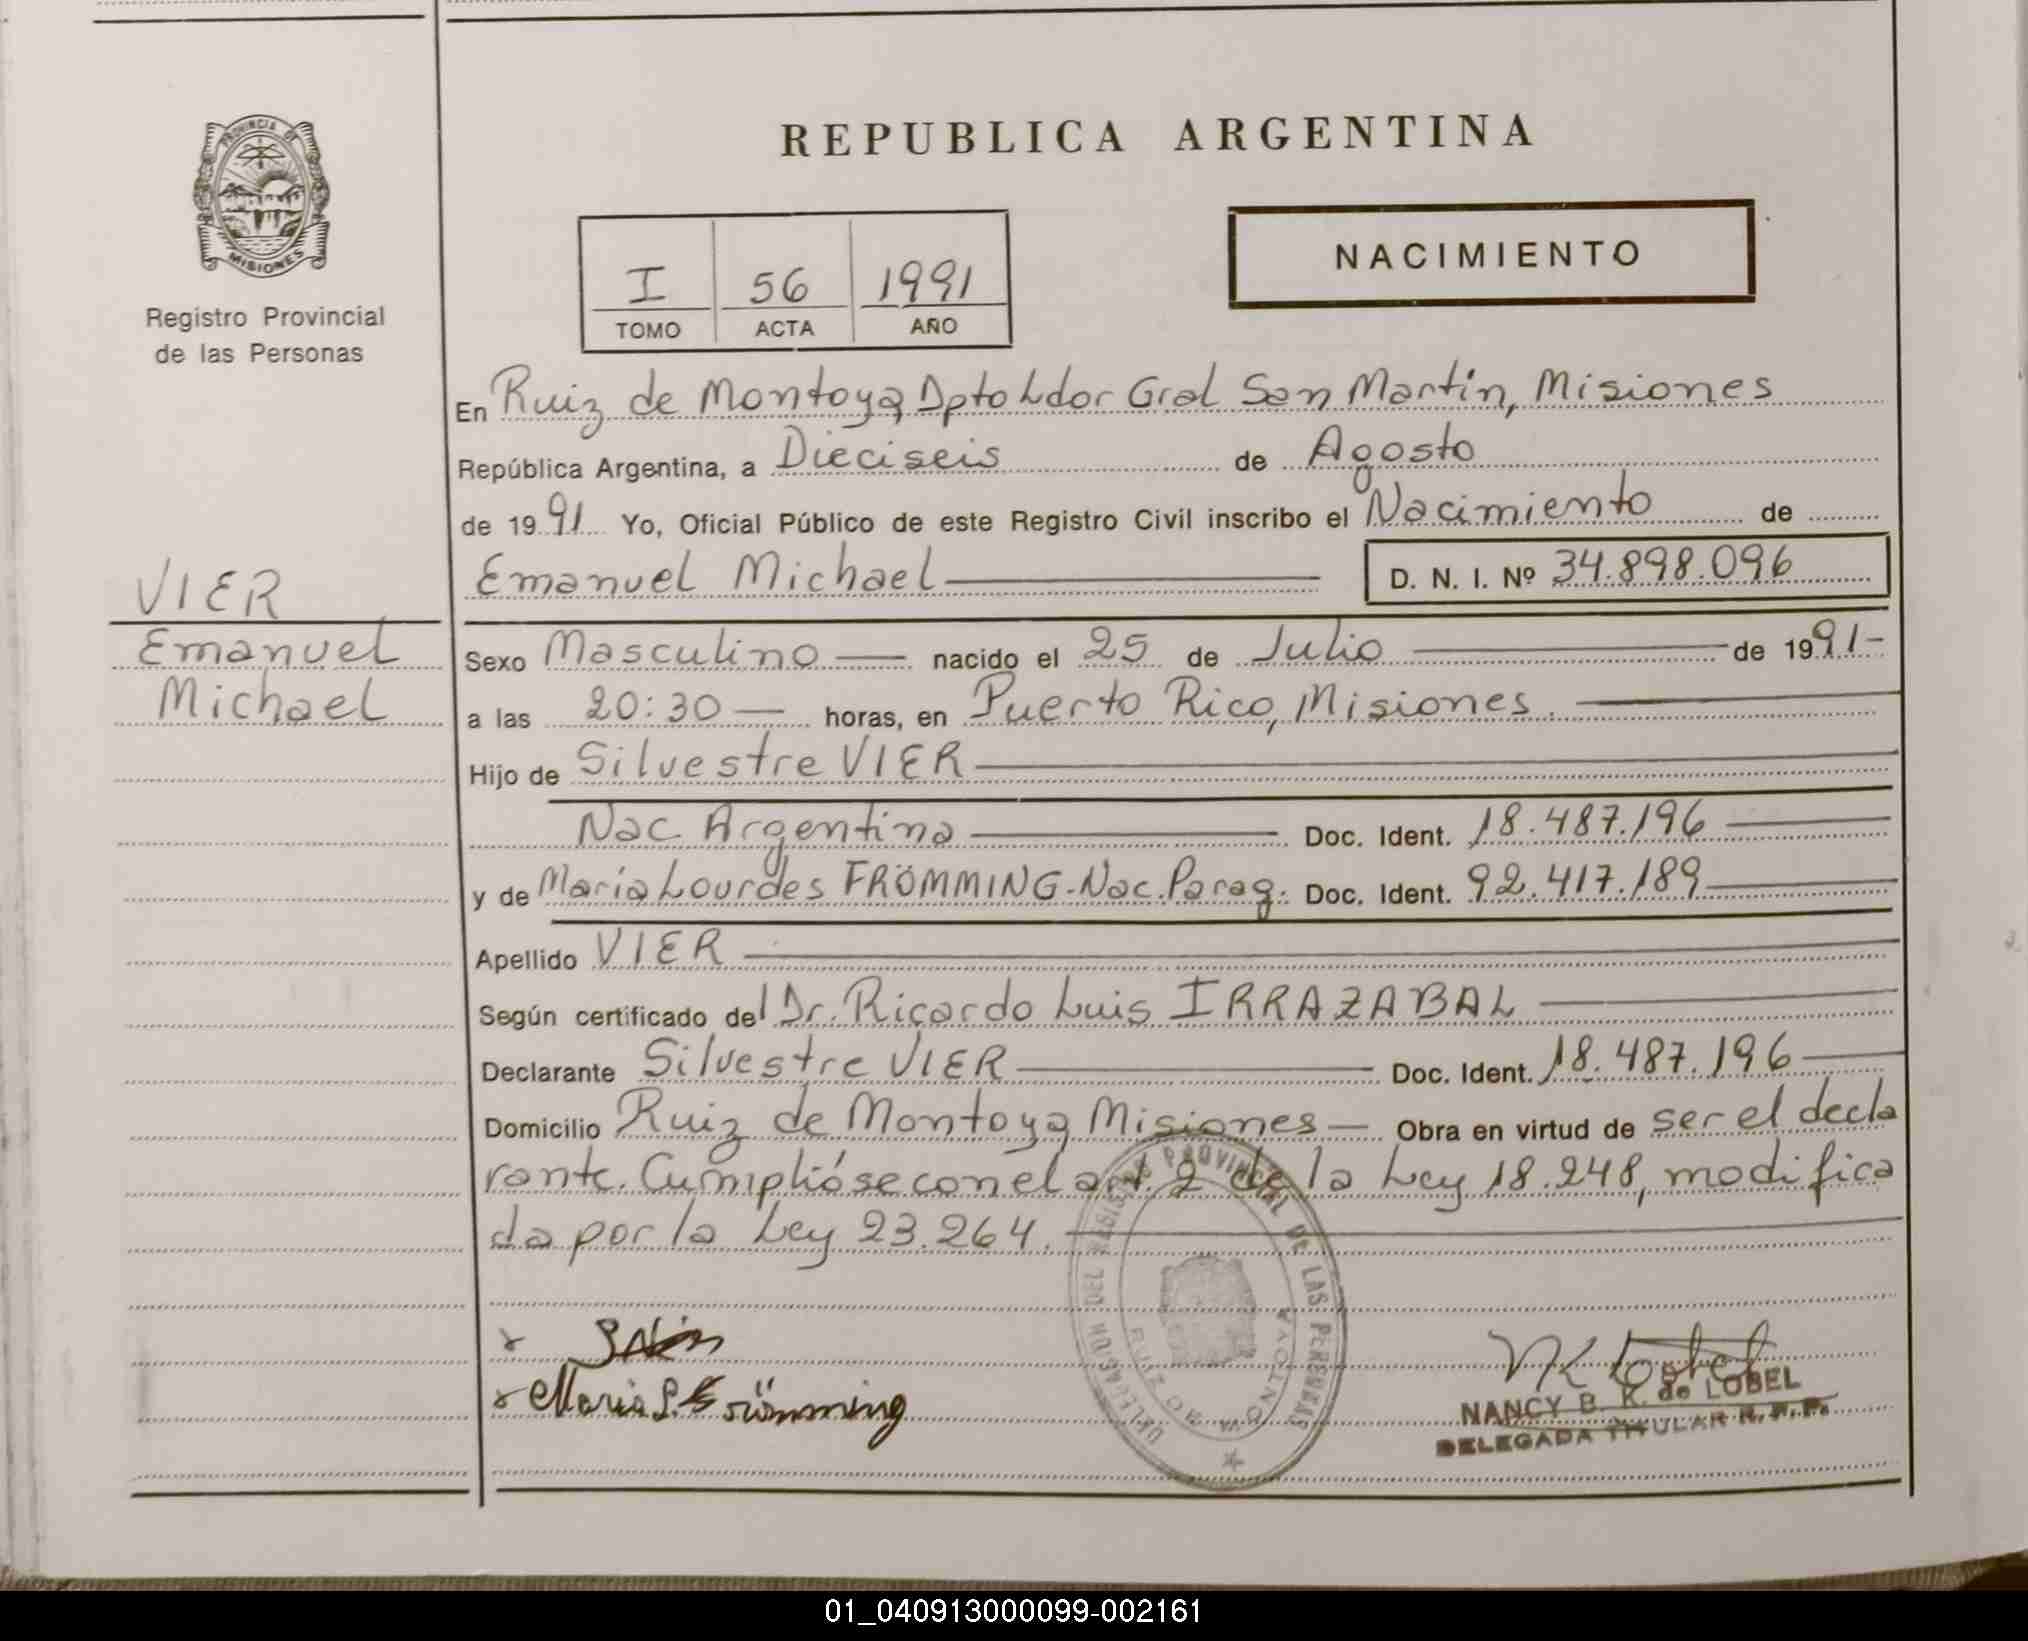 PROVINCIA DE
MISIONES
Registro Provincial
de las Personas
VIER
Emanuel
Michael
REPUBLICA ARGENTINA
I 56 1991
TOMO ACTA AÑO
NACIMIENTO
En Ruiz de Montoya, Dpto Ldor Gral San Martín, Misiones
República Argentina, a Dieciseis de Agosto
de 1991 Yo, Oficial Público de este Registro Civil inscribo el Nacimiento de
Emanuel Michael D. N. I. Nº 34.898.096
Sexo Masculino nacido el 25 de Julio de 1991-
a las 20:30 horas, en Puerto Rico, Misiones.
Hijo de Silvestre VIER
Nac. Argentina Doc. Ident. 18.487.196
y de María Lourdes FRÖMMING-Nac. Parag. Doc. Ident. 92.417.189
Apellido VIER
Según certificado del Dr. Ricardo Luis IRRAZABAL
Declarante Silvestre VIER Doc. Ident. 18.487.196
Domicilio Ruiz de Montoya, Misiones Obra en virtud de ser el decla
rante. Cumplióse con el art. 2 de la Ley 18.248, modifica
da por la Ley 23.264.
DELEGACION DEL REGISTRO PROVINCIAL DE LAS PERSONAS
RUIZ DE MONTOYA
Maria L. Frömming
NANCY B. K. de LOBEL
DELEGADA TITULAR R. P. P.
01_040913000099-002161